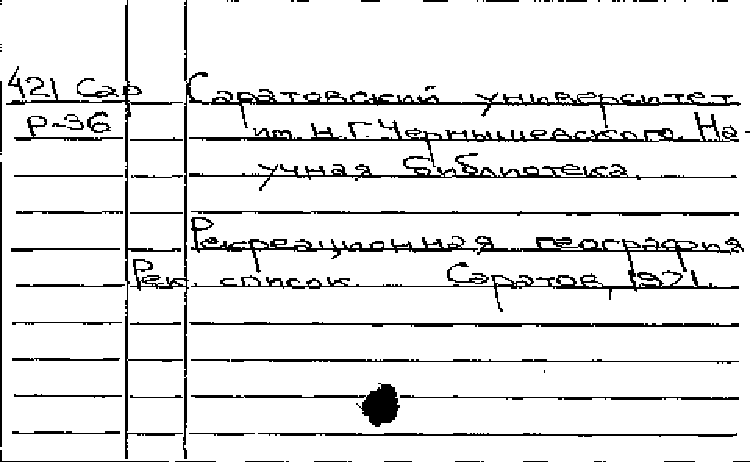 421 Сар Саратовский университет
Р-36 им. Н.Г.Чернышевского. На-
учная библиотека.
Рекреационная география
Рек. список. Саратов, 1971.